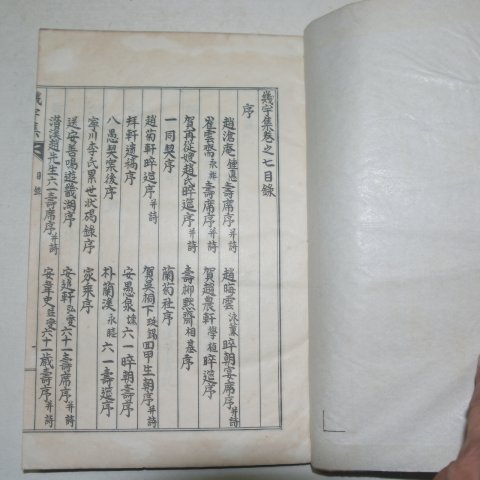 幾宇集卷之七目錄
序
趙滄庵鍾悳壽席序并詩
趙晦雲泳薰晬朝宴席序并詩
崔雲齋永 壽席序并詩
賀趙農軒學植晬筵序
賀再從嫂趙氏晬筵序
壽柳默齋相基序
一同契序
蘭菊社序
趙菊軒晬筵序并詩
賀吳祠下 四甲生朝序并詩
拜軒遺稿序
安愚泉 六一晬朝壽序
八愚契案後序
朴蘭溪永 六一壽筵序
密川李氏累世狀碣錄序
家乘序
送安善鳴遊 湖序
安進軒弘 六十壽席序并詩
溪趙先生六一壽席序并詩
安韋史 六十一歲壽序并詩
幾宇集
目錄